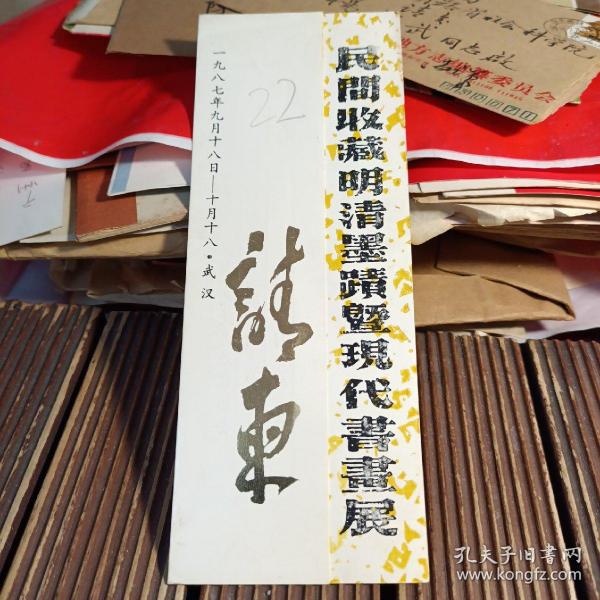 民間收藏明清墨蹟暨現代書畫展
22
請柬
一九八七年九月十八日——十月十八·武汉
武同志啟
孔夫子旧书网
www.kongfz.com